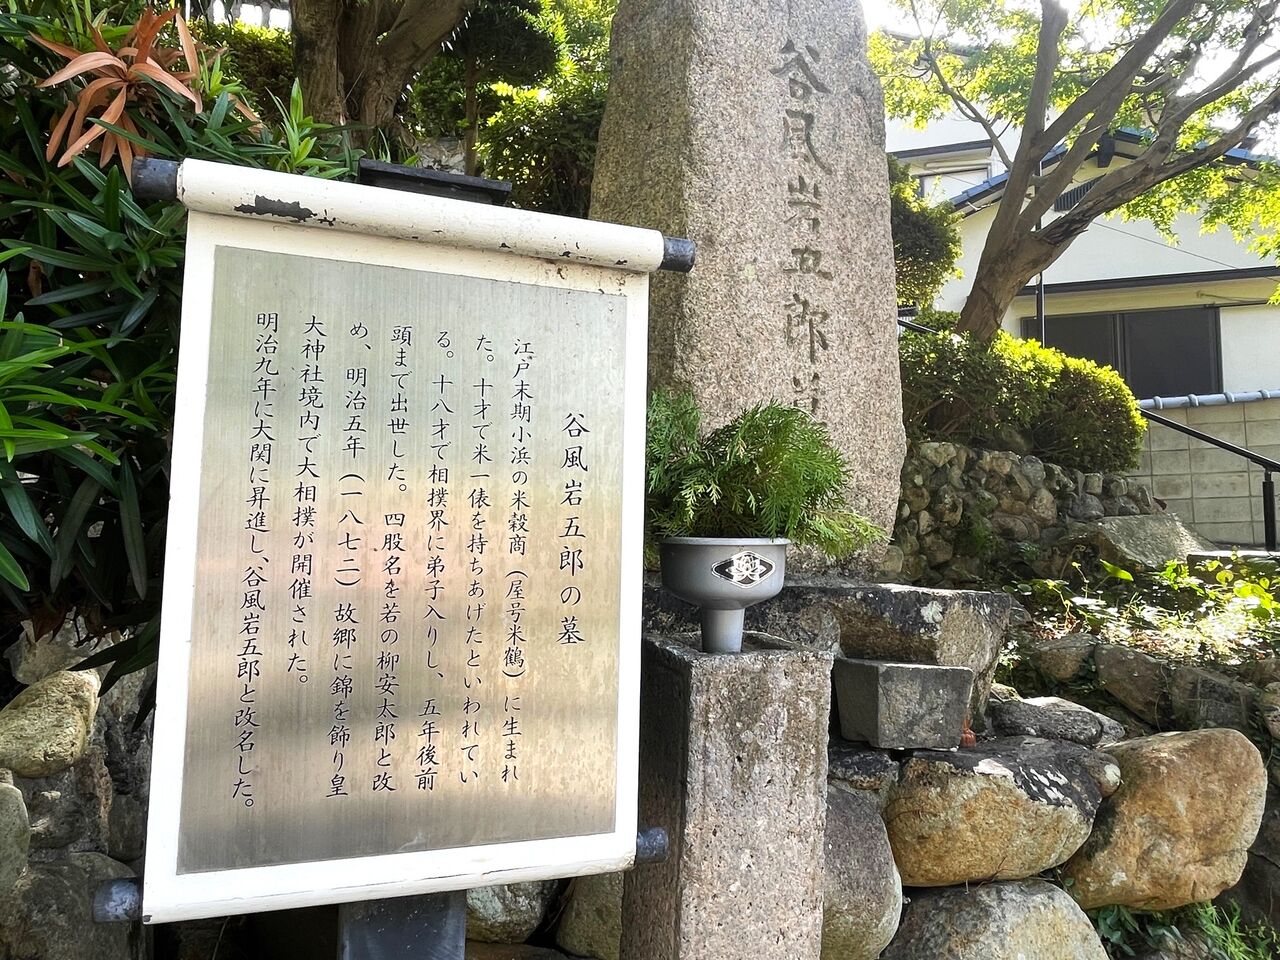 谷風岩五郎の墓
江戸末期小浜の米穀商（屋号米鶴）に生まれ
た。十才で米一俵を持ちあげたといわれてい
る。十八才で相撲界に弟子入りし、五年後前
頭まで出世した。四股名を若の柳安太郎と改
め、明治五年（一八七二）故郷に錦を飾り皇
大神社境内で大相撲が開催された。
明治九年に大関に昇進し、谷風岩五郎と改名した。
谷風岩五郎